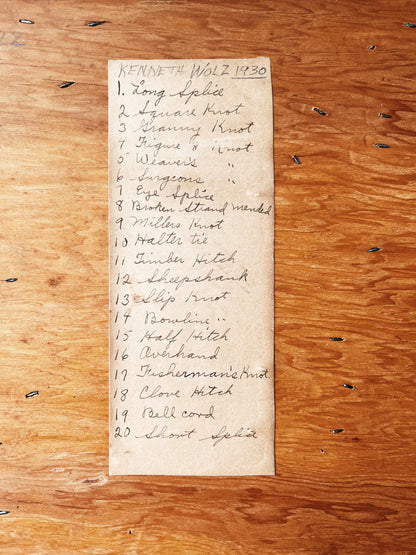 KENNETH WOLZ 1930
1. Long Splice
2 Square Knot
3 Granny Knot
4 Figure 8 Knot
5 Weaver's "
6 Surgeons "
7 Eye Splice
8 Broken Strand mended
9 Millers Knot
10 Halter tie
11 Timber Hitch
12 Sheepshank
13 Slip Knot
14 Bowline "
15 Half Hitch
16 Overhand
17 Fusherman's Knot
18 Clove Hitch
19 Bell cord
20 Short Splice